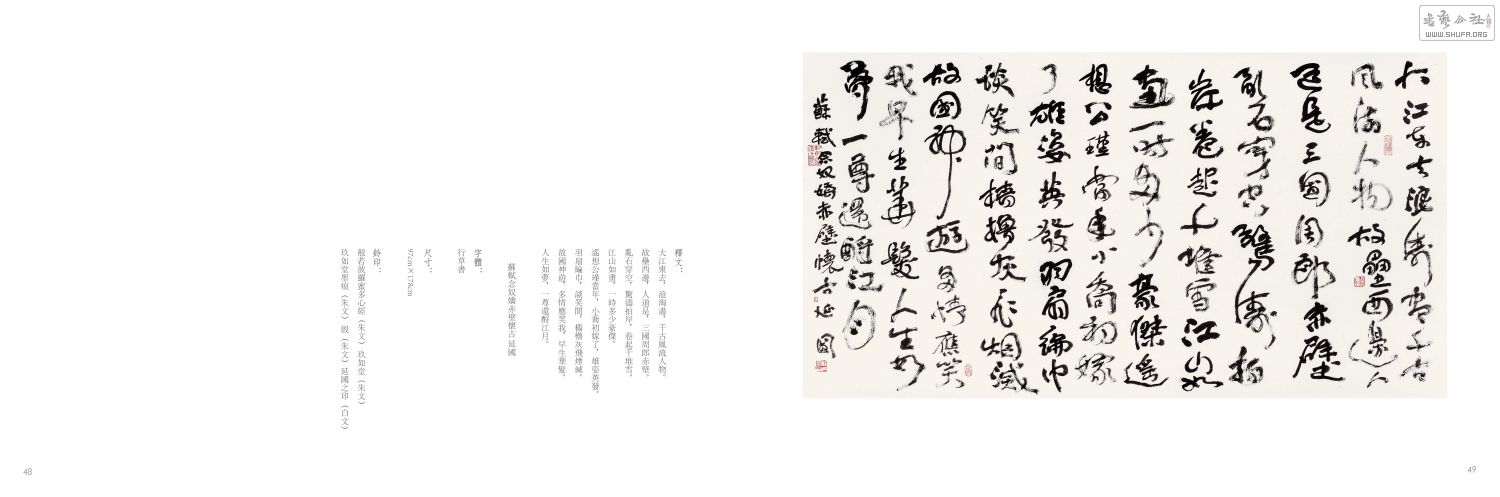 書藝公社
WWW.SHUFA.ORG
大江東去浪淘盡千古
風流人物故壘西邊人
道是三國周郎赤壁
亂石穿空驚濤拍
岸卷起千堆雪江山如
畫一時多少豪傑遙
想公瑾當年小喬初嫁
了雄姿英發羽扇綸巾
談笑間檣櫓灰飛烟滅
故國神遊多情應笑
我早生華髮人生如
夢一尊還酹江月
蘇軾念奴嬌赤壁懷古延國
釋文：
大江東去，浪淘盡，千古風流人物。
故壘西邊，人道是，三國周郎赤壁。
亂石穿空，驚濤拍岸，卷起千堆雪。
江山如畫，一時多少豪傑。
遙想公瑾當年，小喬初嫁了，雄姿英發。
羽扇綸巾，談笑間，檣櫓灰飛煙滅。
故國神遊，多情應笑我，早生華髮。
人生如夢，一尊還酹江月。
蘇軾念奴嬌赤壁懷古 延國
字體：
行草書
尺寸：
97cm×178cm
鈐印：
般若波羅蜜多心經（朱文）玖如堂（朱文）
玖如堂墨痕（朱文）殷（朱文）延國之印（白文）
48
49